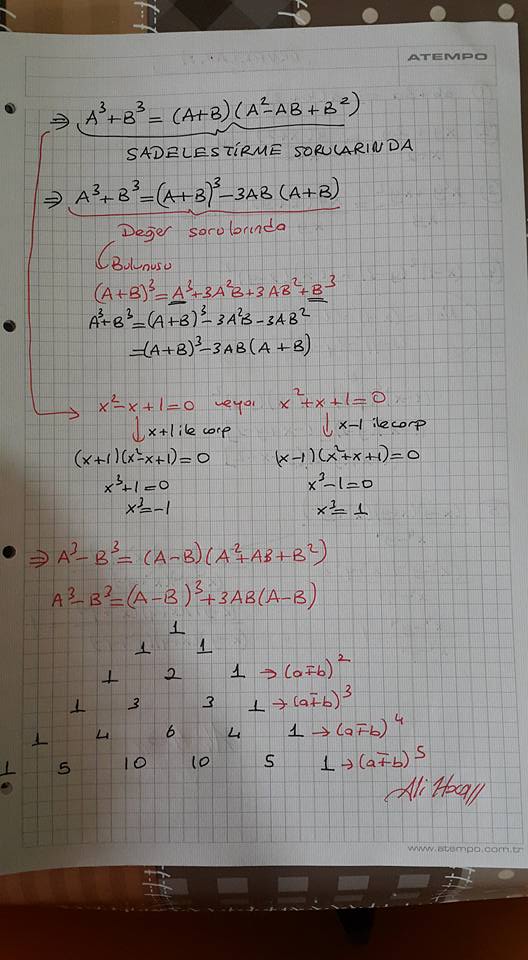 ATEMPO
⇒ A³+B³ = (A+B)(A²-AB+B²)
SADELESTİRME SORULARINDA
⇒ A³+B³=(A+B)³-3AB(A+B)
Değer sorularında
Bulunusu
(A+B)³=A³+3A²B+3AB²+B³
A³+B³=(A+B)³-3A²B-3AB²
=(A+B)³-3AB(A+B)
x²-x+1=0 veya x²+x+1=0
↓x+1 ile çarp ↓x-1 ile çarp
(x+1)(x²-x+1)=0 (x-1)(x²+x+1)=0
x³+1=0 x³-1=0
x³=-1 x³=1
⇒ A³-B³= (A-B)(A²+AB+B²)
A³-B³=(A-B)³+3AB(A-B)
1
1 1
1 2 1 →(a∓b)²
1 3 3 1 →(a∓b)³
1 4 6 4 1 →(a∓b)⁴
1 5 10 10 5 1 →(a∓b)⁵
Ali Hoca
www.atempo.com.tr